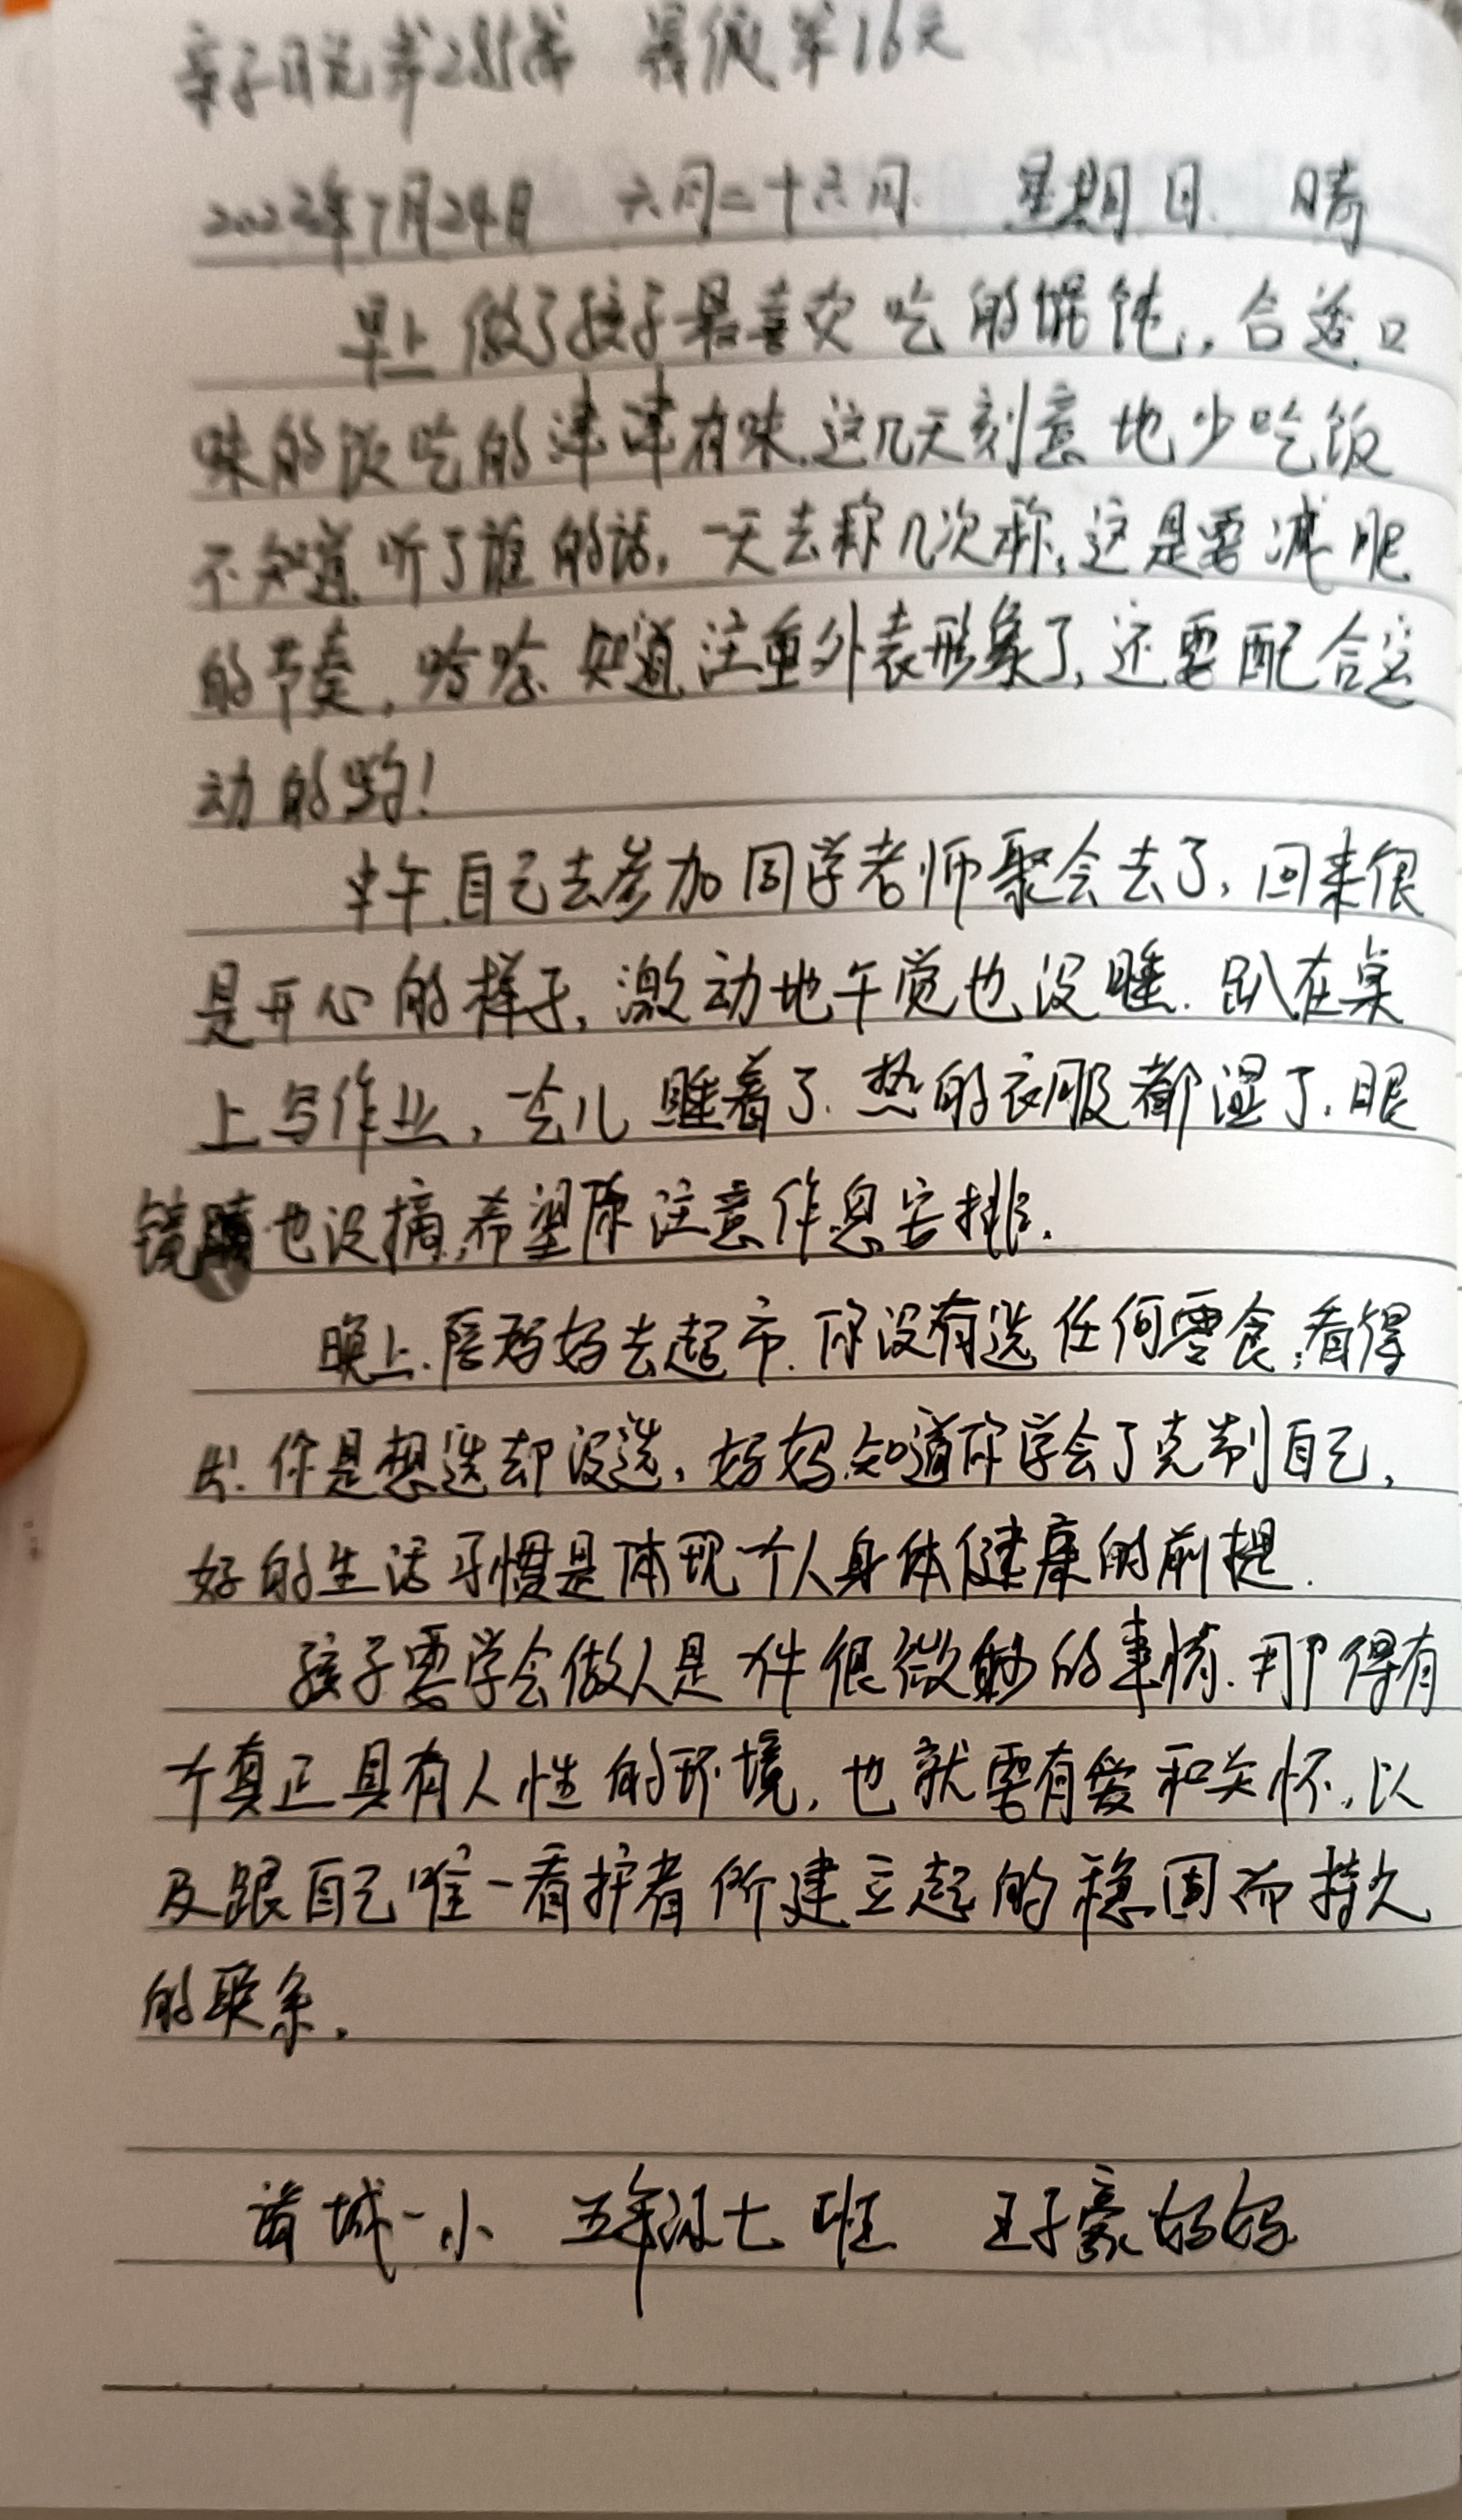 亲子日记第285篇 暑假第16天
2022年7月24日 六月二十六 星期日 晴
早上做了孩子最喜欢吃的馄饨,合适口
味的饭吃的津津有味.这几天刻意地少吃饭
不知道听了谁的话,一天去称几次称,这是要减肥
的节奏,哈哈.知道注重外表形象了,还要配合运
动的哟!
中午.自己去参加同学老师聚会去了,回来很
是开心的样子,激动地午觉也没睡.趴在桌
上写作业,一会儿睡着了.热的衣服都湿了.眼
镜也没摘,希望你注意作息安排.
晚上.陪妈妈去超市.你没有选任何零食,看得
出.你是想选却没选,妈妈知道你学会了克制自己,
好的生活习惯是体现个人身体健康的前提.
孩子要学会做人是一件很微妙的事情.那得有
个真正具有人性的环境,也就要有爱和关怀,以
及跟自己唯一看护者所建立起的稳固而持久
的联系.
诸城一小 五年级七班 王子豪妈妈